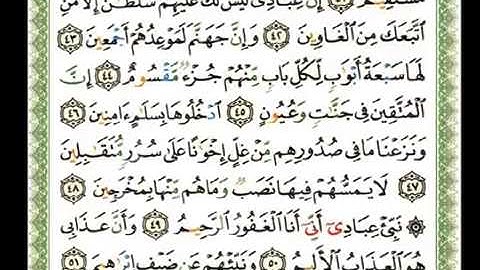 مُسْتَقِيمٌ ٤١ إِنَّ عِبَادِى لَيْسَ لَكَ عَلَيْهِمْ سُلْطَٰنٌ إِلَّا مَنِ
ٱتَّبَعَكَ مِنَ ٱلْغَاوِينَ ٤٢ وَإِنَّ جَهَنَّمَ لَمَوْعِدُهُمْ أَجْمَعِينَ ٤٣
لَهَا سَبْعَةُ أَبْوَٰبٍ لِّكُلِّ بَابٍ مِّنْهُمْ جُزْءٌ مَّقْسُومٌ ٤٤ إِنَّ
ٱلْمُتَّقِينَ فِى جَنَّٰتٍ وَعُيُونٍ ٤٥ ٱدْخُلُوهَا بِسَلَٰمٍ ءَامِنِينَ ٤٦
وَنَزَعْنَا مَا فِى صُدُورِهِم مِّنْ غِلٍّ إِخْوَٰنًا عَلَىٰ سُرُرٍ مُّتَقَٰبِلِينَ
٤٧ لَا يَمَسُّهُمْ فِيهَا نَصَبٌ وَمَا هُم مِّنْهَا بِمُخْرَجِينَ ٤٨
۞ نَبِّئْ عِبَادِىٓ أَنِّىٓ أَنَا ٱلْغَفُورُ ٱلرَّحِيمُ ٤٩ وَأَنَّ عَذَابِى
هُوَ ٱلْعَذَابُ ٱلْأَلِيمُ ٥٠ وَنَبِّئْهُمْ عَن ضَيْفِ إِبْرَٰهِيمَ ٥١